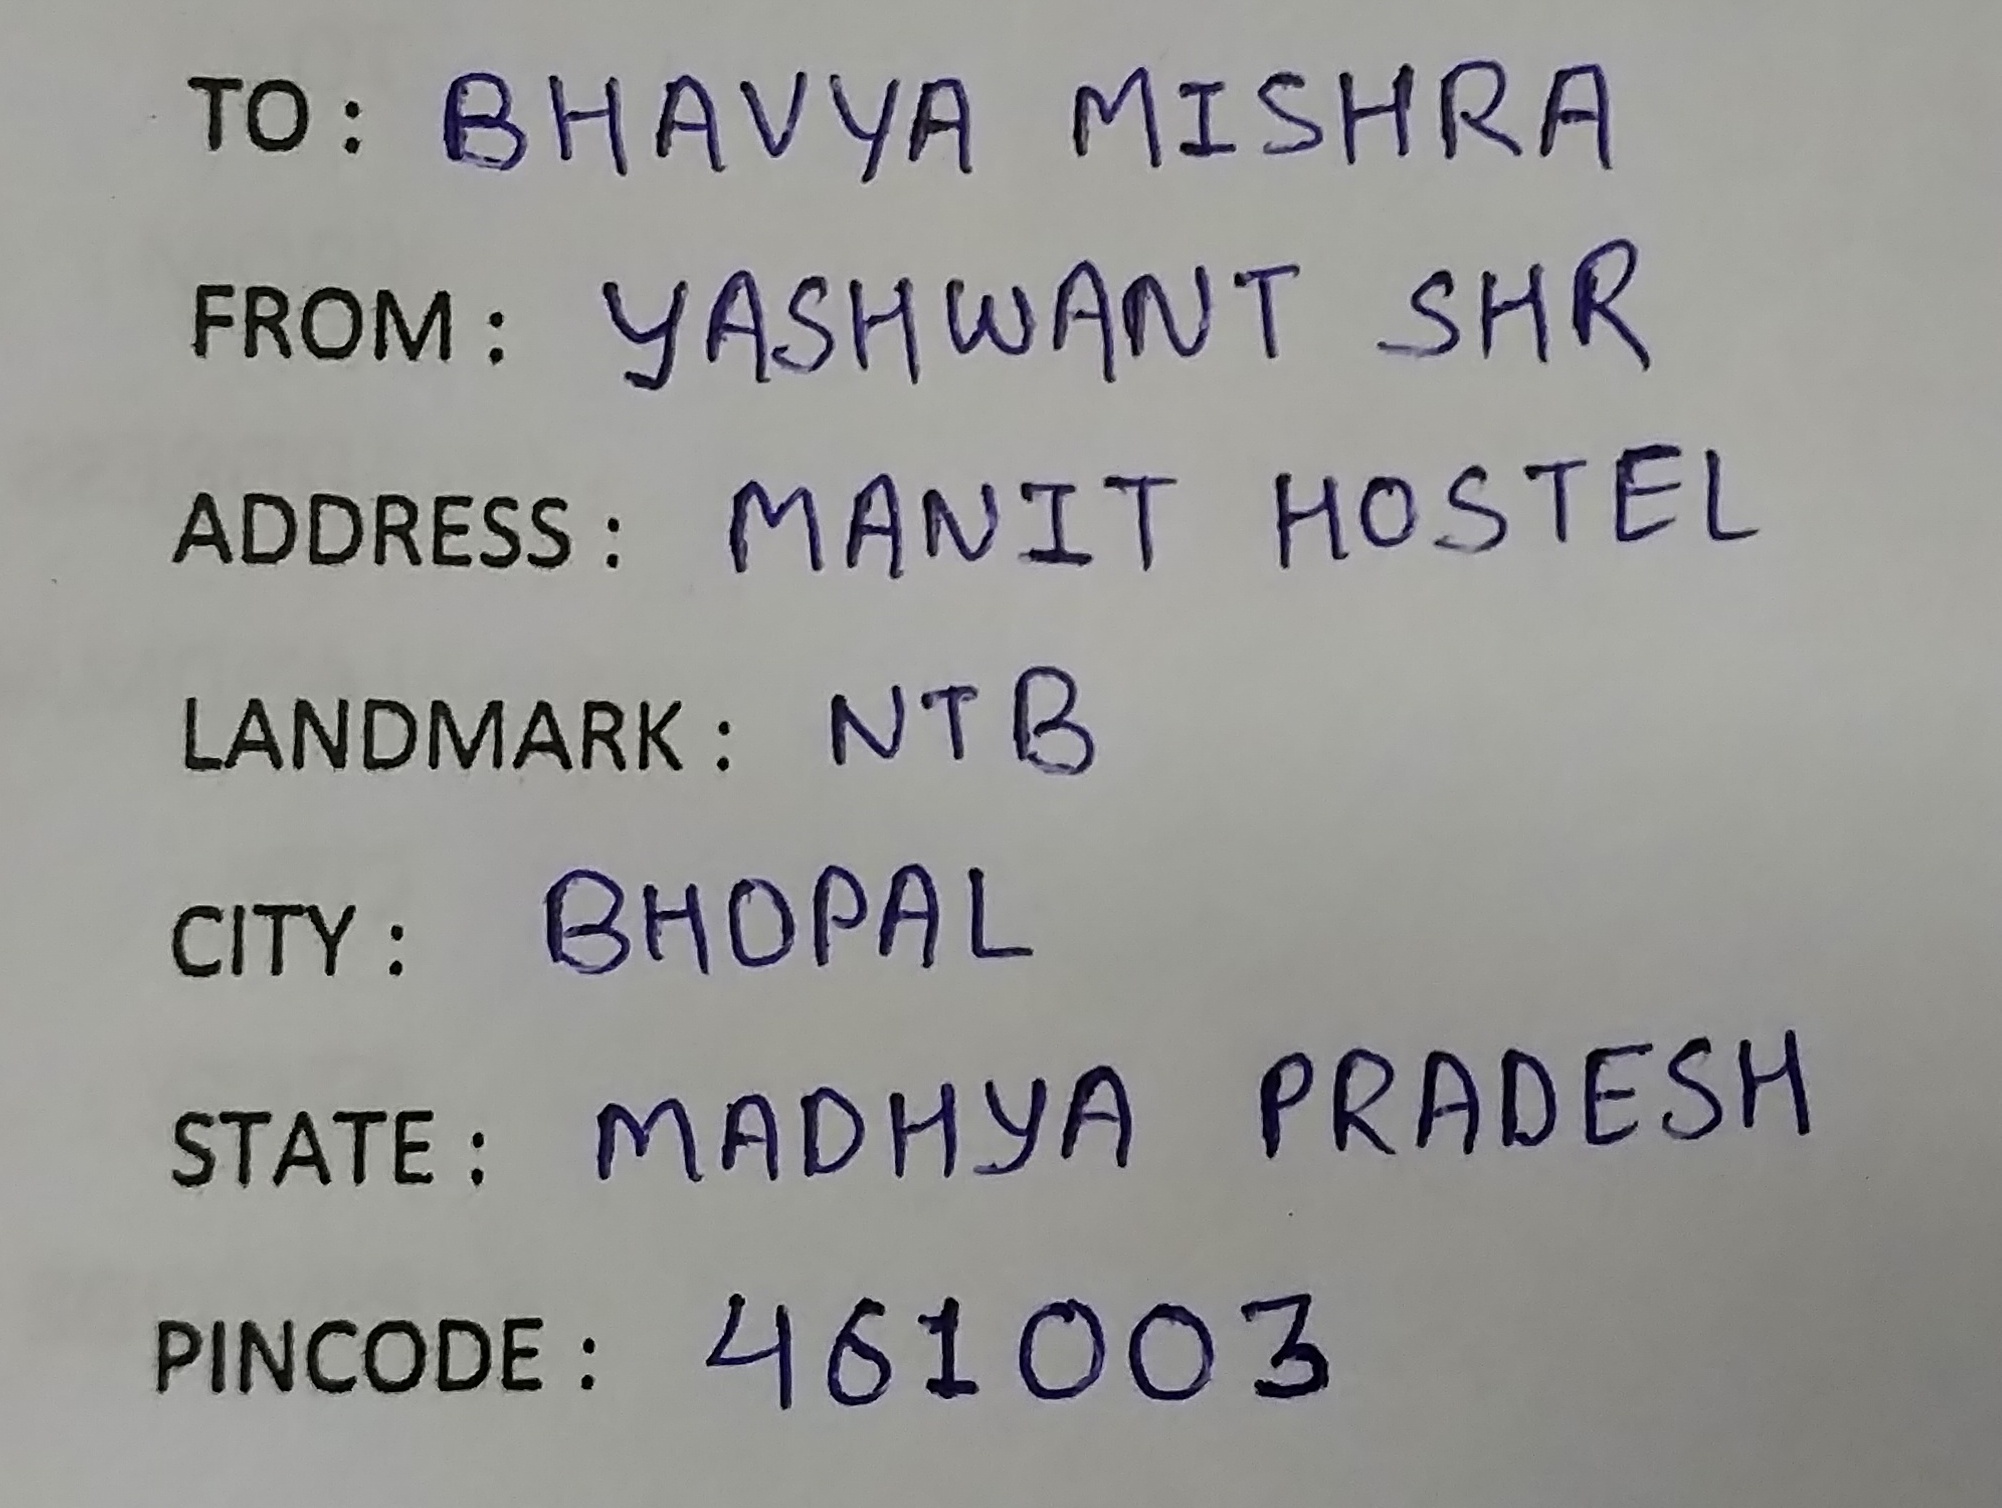 TO : BHAVYA MISHRA
FROM : YASHWANT SHR
ADDRESS : MANIT HOSTEL
LANDMARK : NTB
CITY : BHOPAL
STATE : MADHYA PRADESH
PINCODE : 461003